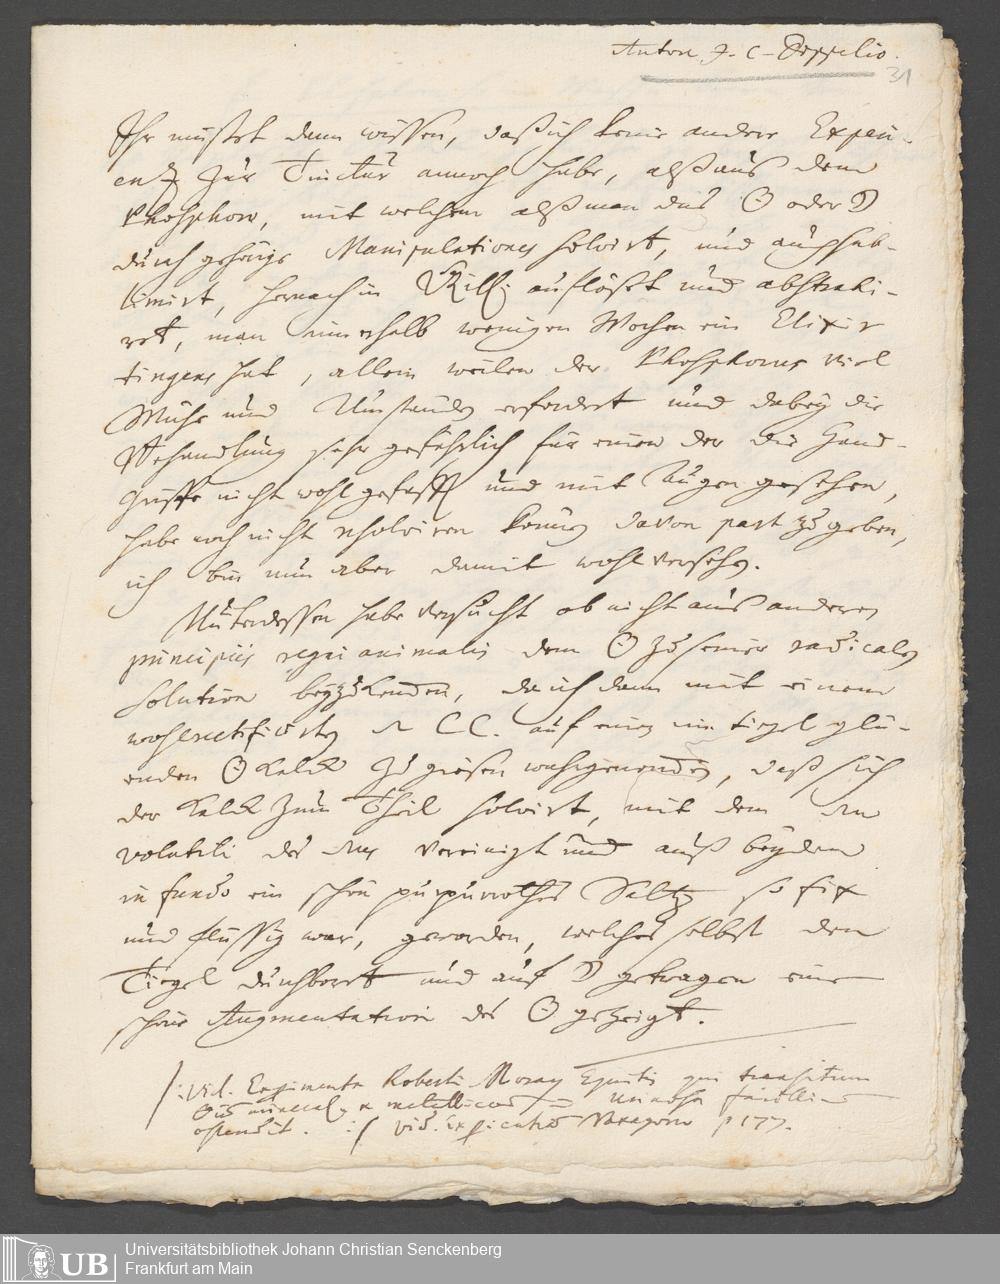 Autore J. C.
31
Ihr müsset dann wissen, daß ich keine andere Experi-
entz zur Tinctur annoch habe, alß auß dem
Phosphoro, mit welchem alß man das ☉ oder ☽
durch gehörige Manipulationes solvirt, und auch sub-
limirt, hernach in auflößet und abstrahi-
ret, man innerhalb wenigen Wochen ein Elixir
tingens hat, allein weilen der Phosphorus viel
Mühe und Umstände erfordert und dabey die
Behandlung sehr gefährlich für einen der die Hand-
griffe nicht wohl gefasst und mit Augen gesehen,
habe noch nicht resolviren können davon part zu geben,
ich bin nun aber damit wohl versehen.
Unterdessen habe versucht ob nicht aus anderen
principiis regni animalis dem ☉ zu seiner radicalen
solution beyzukommen, da ich dann mit einem
wohlrectificirten C.C. auf einen im tiegel glü-
enden ☉ kalck zu giesen wahrgenommen, daß sich
der kalck zum Theil solvirt, mit dem
volatili des vereinigt und auß beyden
in fundo ein schön purpurrothes Saltz so fix
und flüssig war, geworden, welches selbst den
Tiegel durchbort und auf ☽ getragen eine
schöne Augmentation des ☉ gezeigt.
/: vid. Experimenta Roberti Moray Equitis qui transitum
ostendit. :/ vid. p 177.
Universitätsbibliothek Johann Christian Senckenberg
Frankfurt am Main
UB